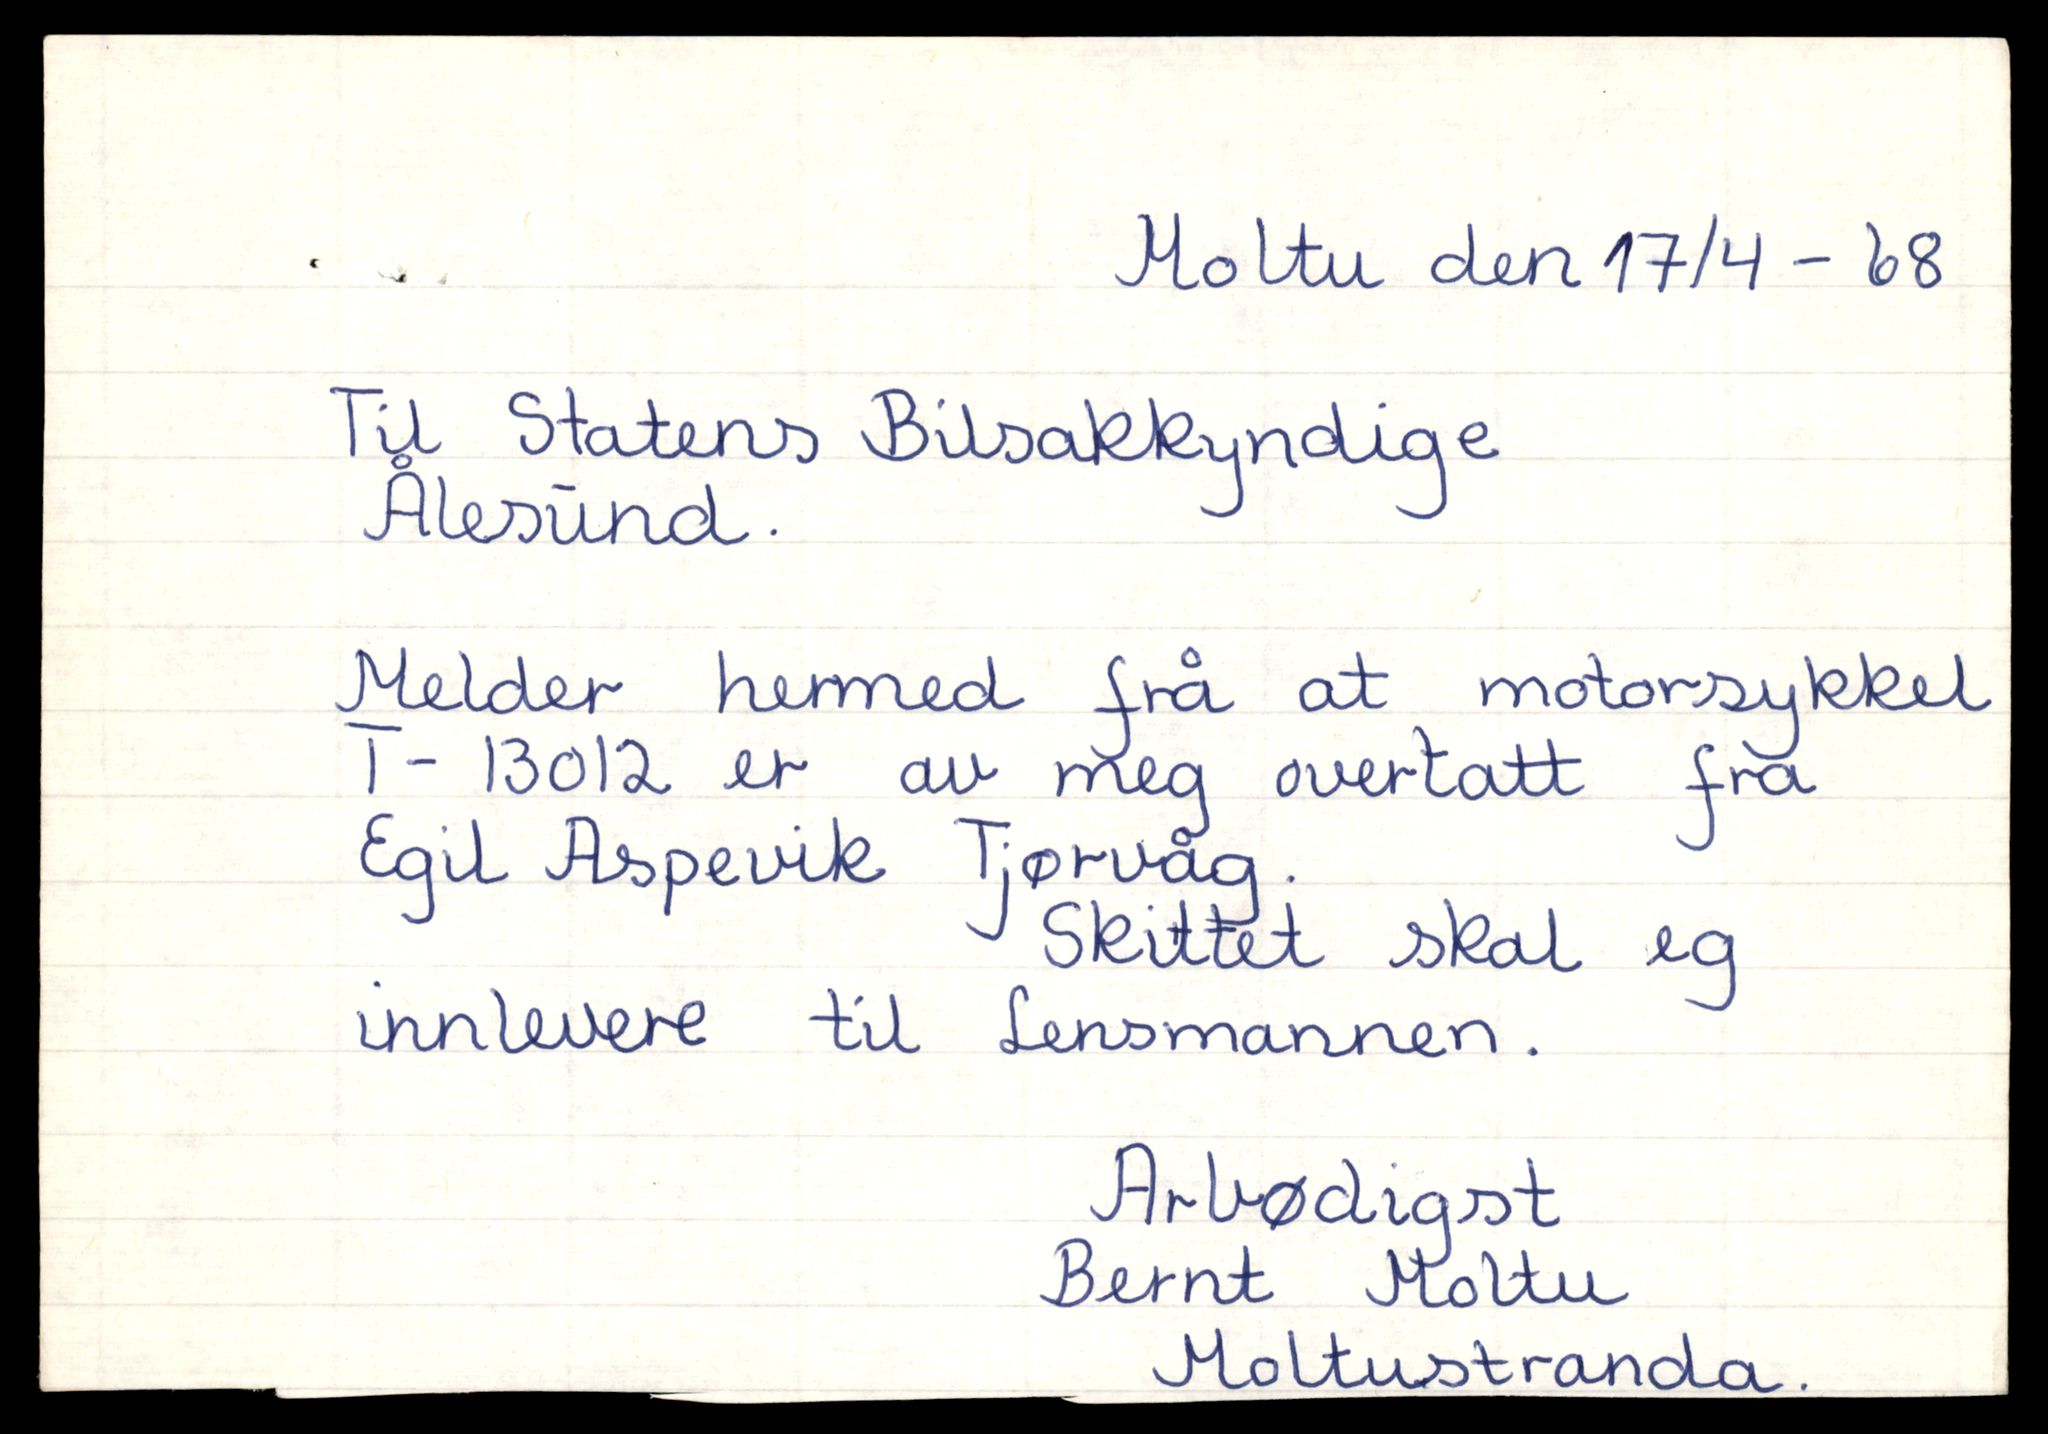 Moltu den 17/4 - 68
Til Statens Bilsakkyndige
Ålesund.
Melder hermed frå at motorsykkel
T - 13012 er av meg overtatt frå
Egil Aspevik Tjørvåg.
Skittet skal eg
innlevere til Lensmannen.
Arbødigst
Bernt Moltu
Moltustranda.